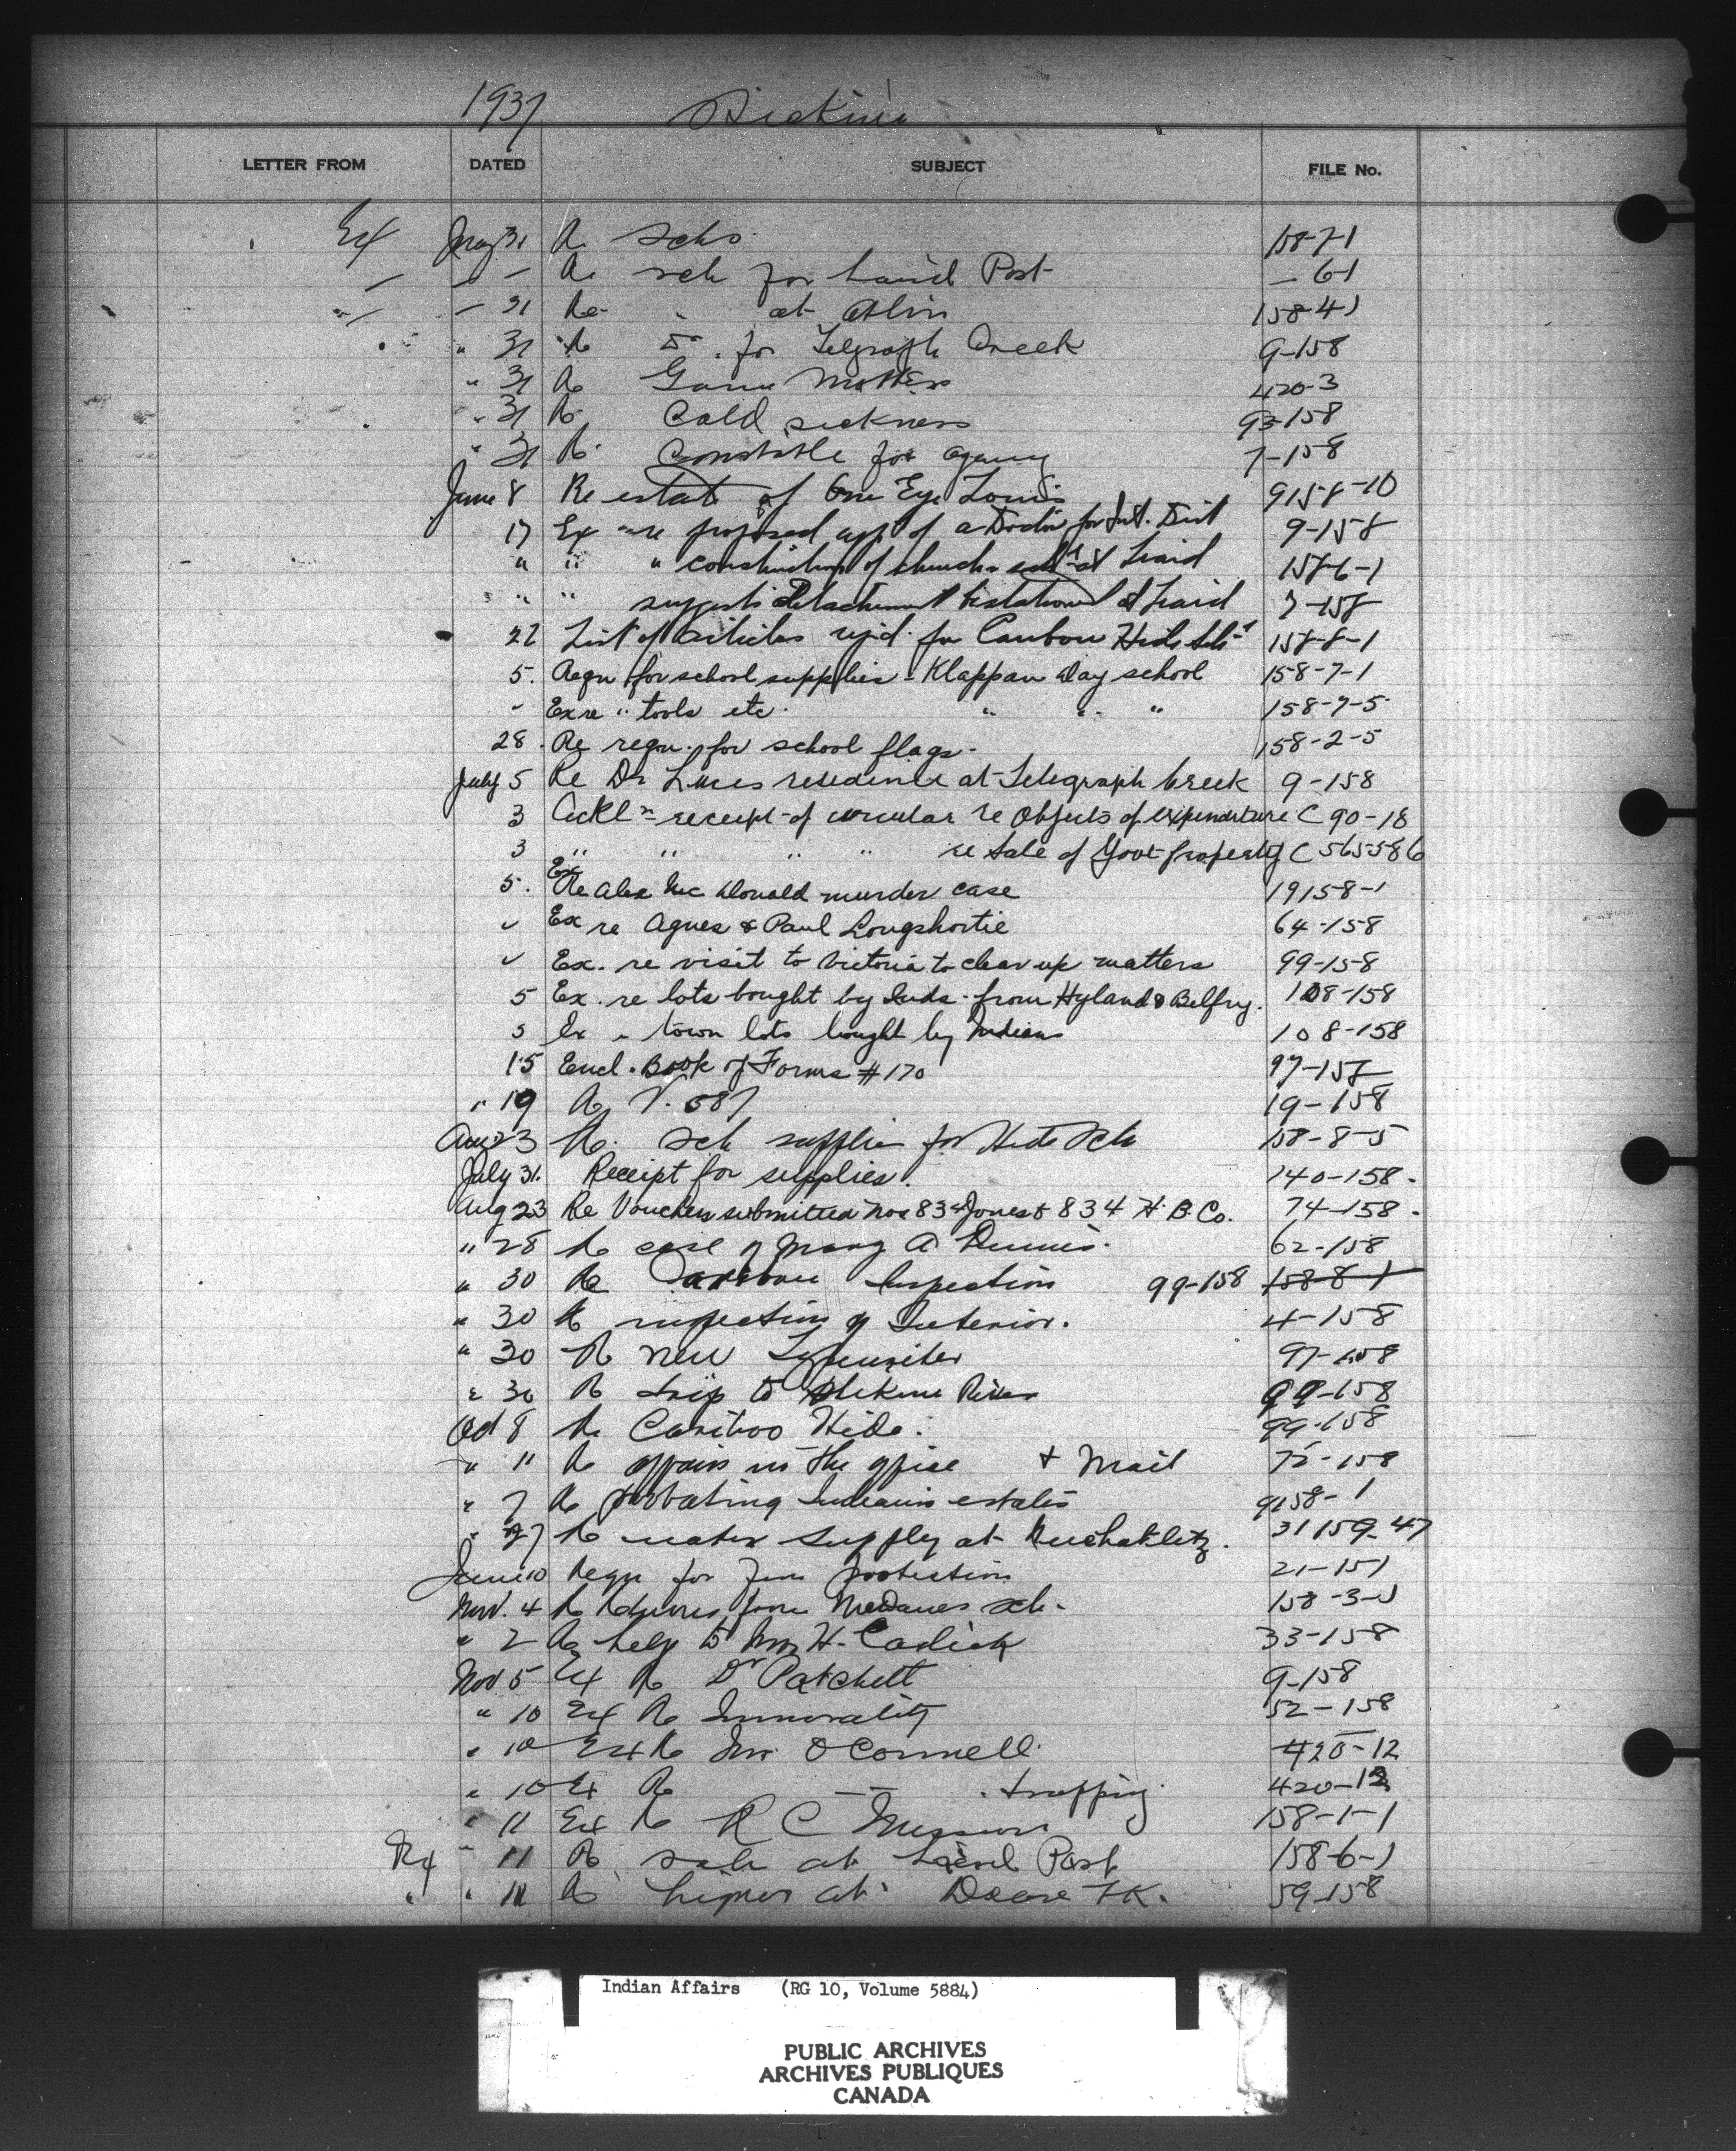 1937 Stickine
LETTER FROM DATED SUBJECT FILE No.
Ex May 31 Re Schs 158-7-1
" " - Re sch for Liard Post - 6-1
" - 31 Re " at Atlin 158-4-1
" 31 Re Dr. for Telegraph Creek 9-158
" 31 Re Game Matters 420-3
" 31 Re Cold sickness 93-158
" 31 Re Constable for Agency 7-158
June 8 Re estate of One Eye Louis 9158-10
17 Ex re proposed app of a Doctor for Int. Dist 9-158
" " " construction of church & sch at Liard 158-6-1
" " suggests detachment stationed at Liard 7-158
22 List of articles req'd for Caribou Hide Sch 158-8-1
5. Reqn for school supplies - Klappan day school 158-7-1
" Ex re " tools etc. " " " 158-7-5
28. Re reqn. for school flags- 158-2-5
July 5 Re Dr residence at Telegraph Creek 9-158
3 Ackl receipt of circular re Objects of expenditure C 90-18
3 " " " " re Sale of Govt property C 565586
5. Ex Re Alex McDonald murder case 19158-1
" Ex re Agnes & Paul Longshortie 64-158
" Ex. re visit to Victoria to clear up matters 99-158
5 Ex. re lots bought by Inds. from Hyland & Belfry. 108-158
5 Ex " town lots bought by Indians 108-158
15 Encl. Book of Forms #170 97-158
" 19 Re V. 587 19-158
Aug 23 Re. Sch supplies for Hide Sch 158-8-5
July 31. Receipt for supplies. 140-158.
Aug 23 Re Vouchers submitted Nos 834 Jones & 834 H.B. Co. 74-158.
" 28 Re case of Mary A Dennis. 62-158
" 30 Re Caribou Inspection 99-158 158-8-1
" 30 Re inspection of Interior. 4-158
" 30 Re New Typewriter 97-158
" 30 Re trip to Stikine River 99-158
Oct 8 Re Cariboo Hide. 99-158
" 11 Re affairs in the office & Mail 75-158
" 7 Re probating Indians estates 9158-1
" 27 Re water supply at Nuchatlitz. 31159-47
June 10 Reqn for fire protection 21-151
Nov. 4 Re from McDames sch. 158-3-1
" 2 Re help to H. Carlick 33-158
Nov 5 Ex Re Dr Patchett 9-158
" 10 Ex Re Immorality 52-158
" 10 Ex Re Mr O'Connell 420-12
" 10 Ex Re - . trapping 420-12
" 11 Ex Re R C Mission 158-1-1
Ex " 11 Re sch at Liard Post 158-6-1
" " 11 Re at Dease Lk. 59-158
Indian Affairs (RG 10, Volume 5884)
PUBLIC ARCHIVES
ARCHIVES PUBLIQUES
CANADA